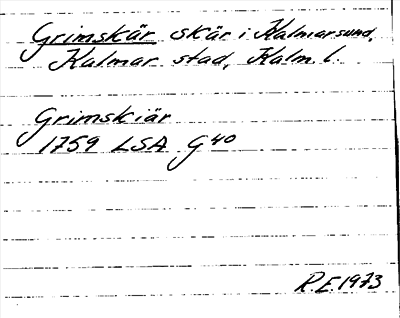 Grimskär skär i Kalmarsund,
Kalmar stad, Kalm. l.
Grimskiär
1759 LSA G 40
R.E. 1973